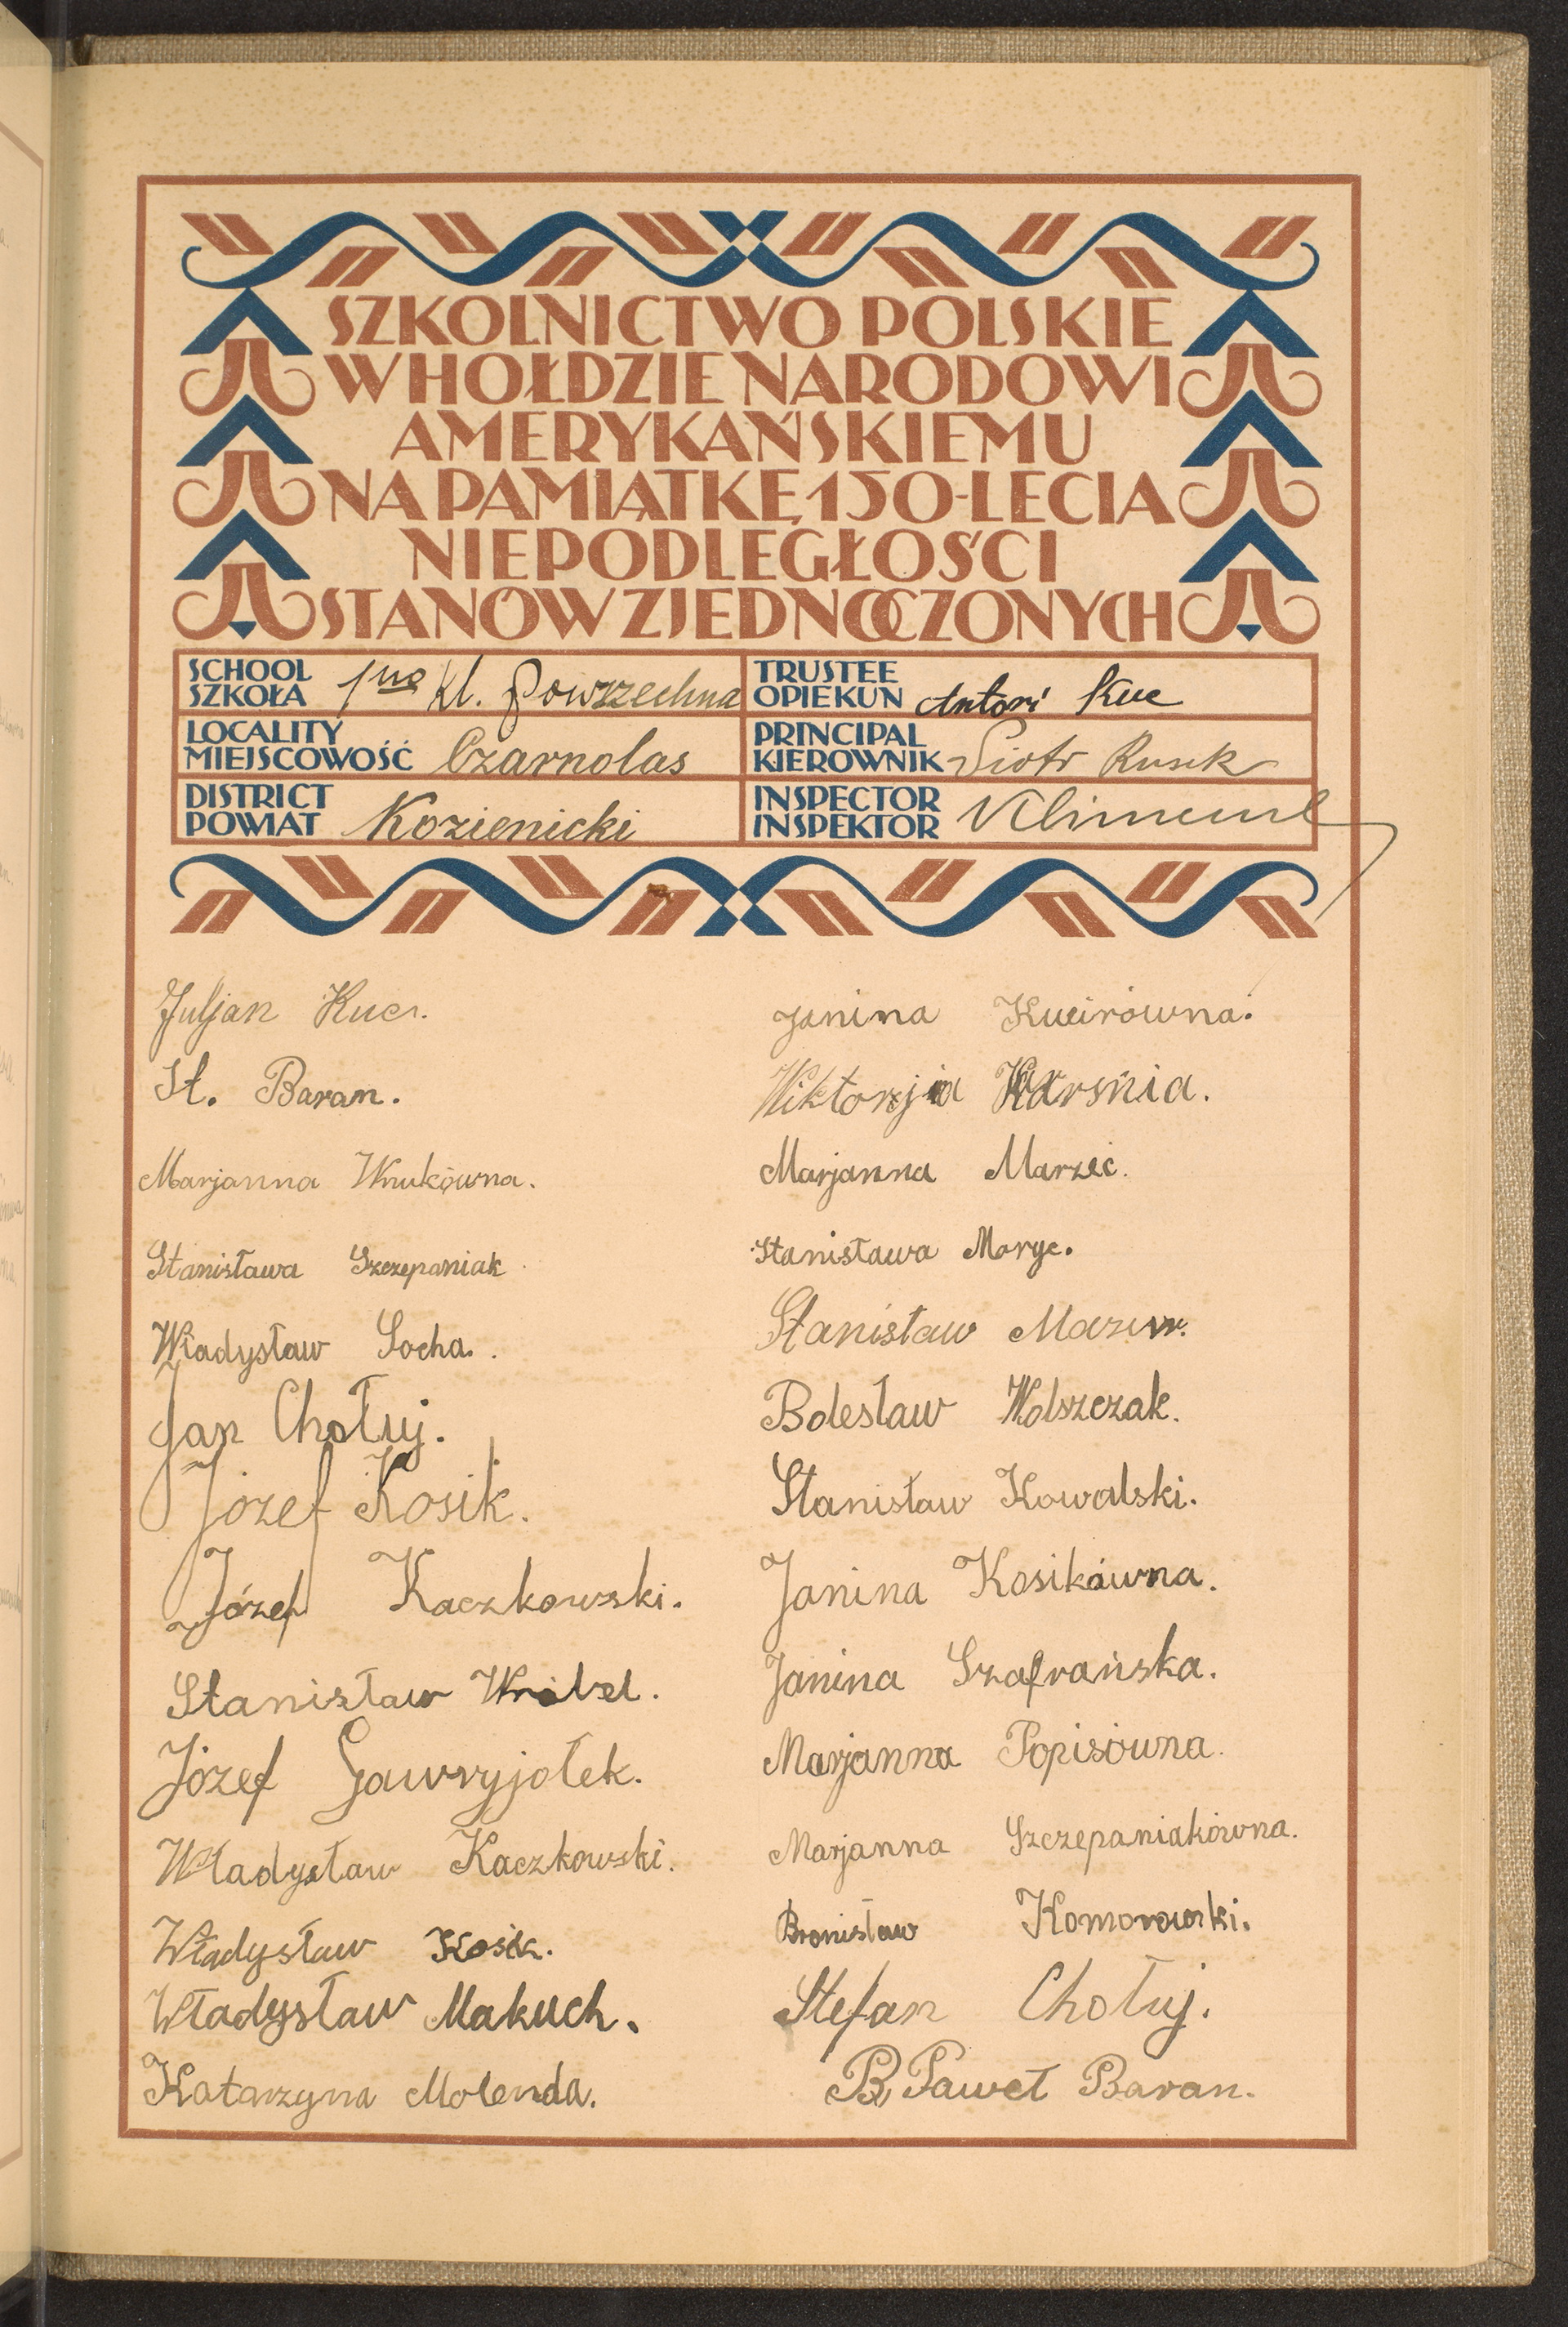 SZKOLNICTWO POLSKIE
W HOŁDZIE NARODOWI
AMERYKAŃSKIEMU
NA PAMIĄTKĘ 150-LECIA
NIEPODLEGŁOŚCI
STANÓW ZJEDNOCZONYCH
SCHOOL
SZKOŁA 1no kl. Powszechna
TRUSTEE
OPIEKUN Antoni Kuc
LOCALITY
MIEJSCOWOŚĆ Czarnolas
PRINCIPAL
KIEROWNIK Piotr
DISTRICT
POWIAT Kozienicki
INSPECTOR
INSPEKTOR
Juljan Kucr.
St. Baran.
Marjanna Wnukówna.
Stanisława Szczepaniak
Władysław Socha.
Jan Chołuj.
Józef Kosik.
Józef Kaczkowski.
Stanisław Wróbel.
Józef Gawryjołek.
Władysław Kaczkowski.
Władysław Kosik.
Władysław Makuch.
Katarzyna Molenda.
Janina Kucirówna.
Wiktorja Karśnia.
Marjanna Marzec.
Stanisława Moryc.
Stanisław Mazur.
Bolesław Wolszczak.
Stanisław Kowalski.
Janina Kosikówna.
Janina Szafrańska.
Marjanna Popisówna.
Marjanna Szczepaniakówna.
Bronisław Komorowski.
Stefan Chołuj.
Paweł Baran.